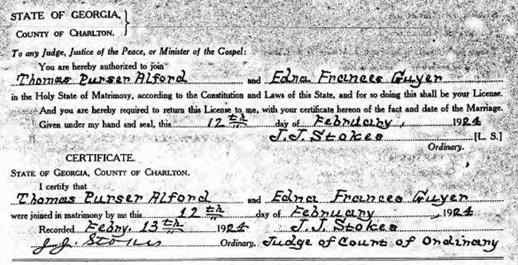 STATE OF GEORGIA,
COUNTY OF CHARLTON.
To any Judge, Justice of the Peace, or Minister of the Gospel:
You are hereby authorized to join
Thomas Purser Alford and Edna Frances Guyer
in the Holy State of Matrimony, according to the Constitution and Laws of this State, and for so doing this shall be your License.
And you are hereby required to return this License to me, with your certificate hereon of the fact and date of the Marriage.
Given under my hand and seal, this 12th day of February, 1924
J.J. Stokes [L. S.]
Ordinary.
CERTIFICATE.
STATE OF GEORGIA, COUNTY OF CHARLTON.
I certify that
Thomas Purser Alford and Edna Frances Guyer
were joined in matrimony by me this 12th day of February, 1924
Recorded Febry. 13th 1924 J.J. Stokes
J.J. Stokes Ordinary. Judge of Court of Ordinary